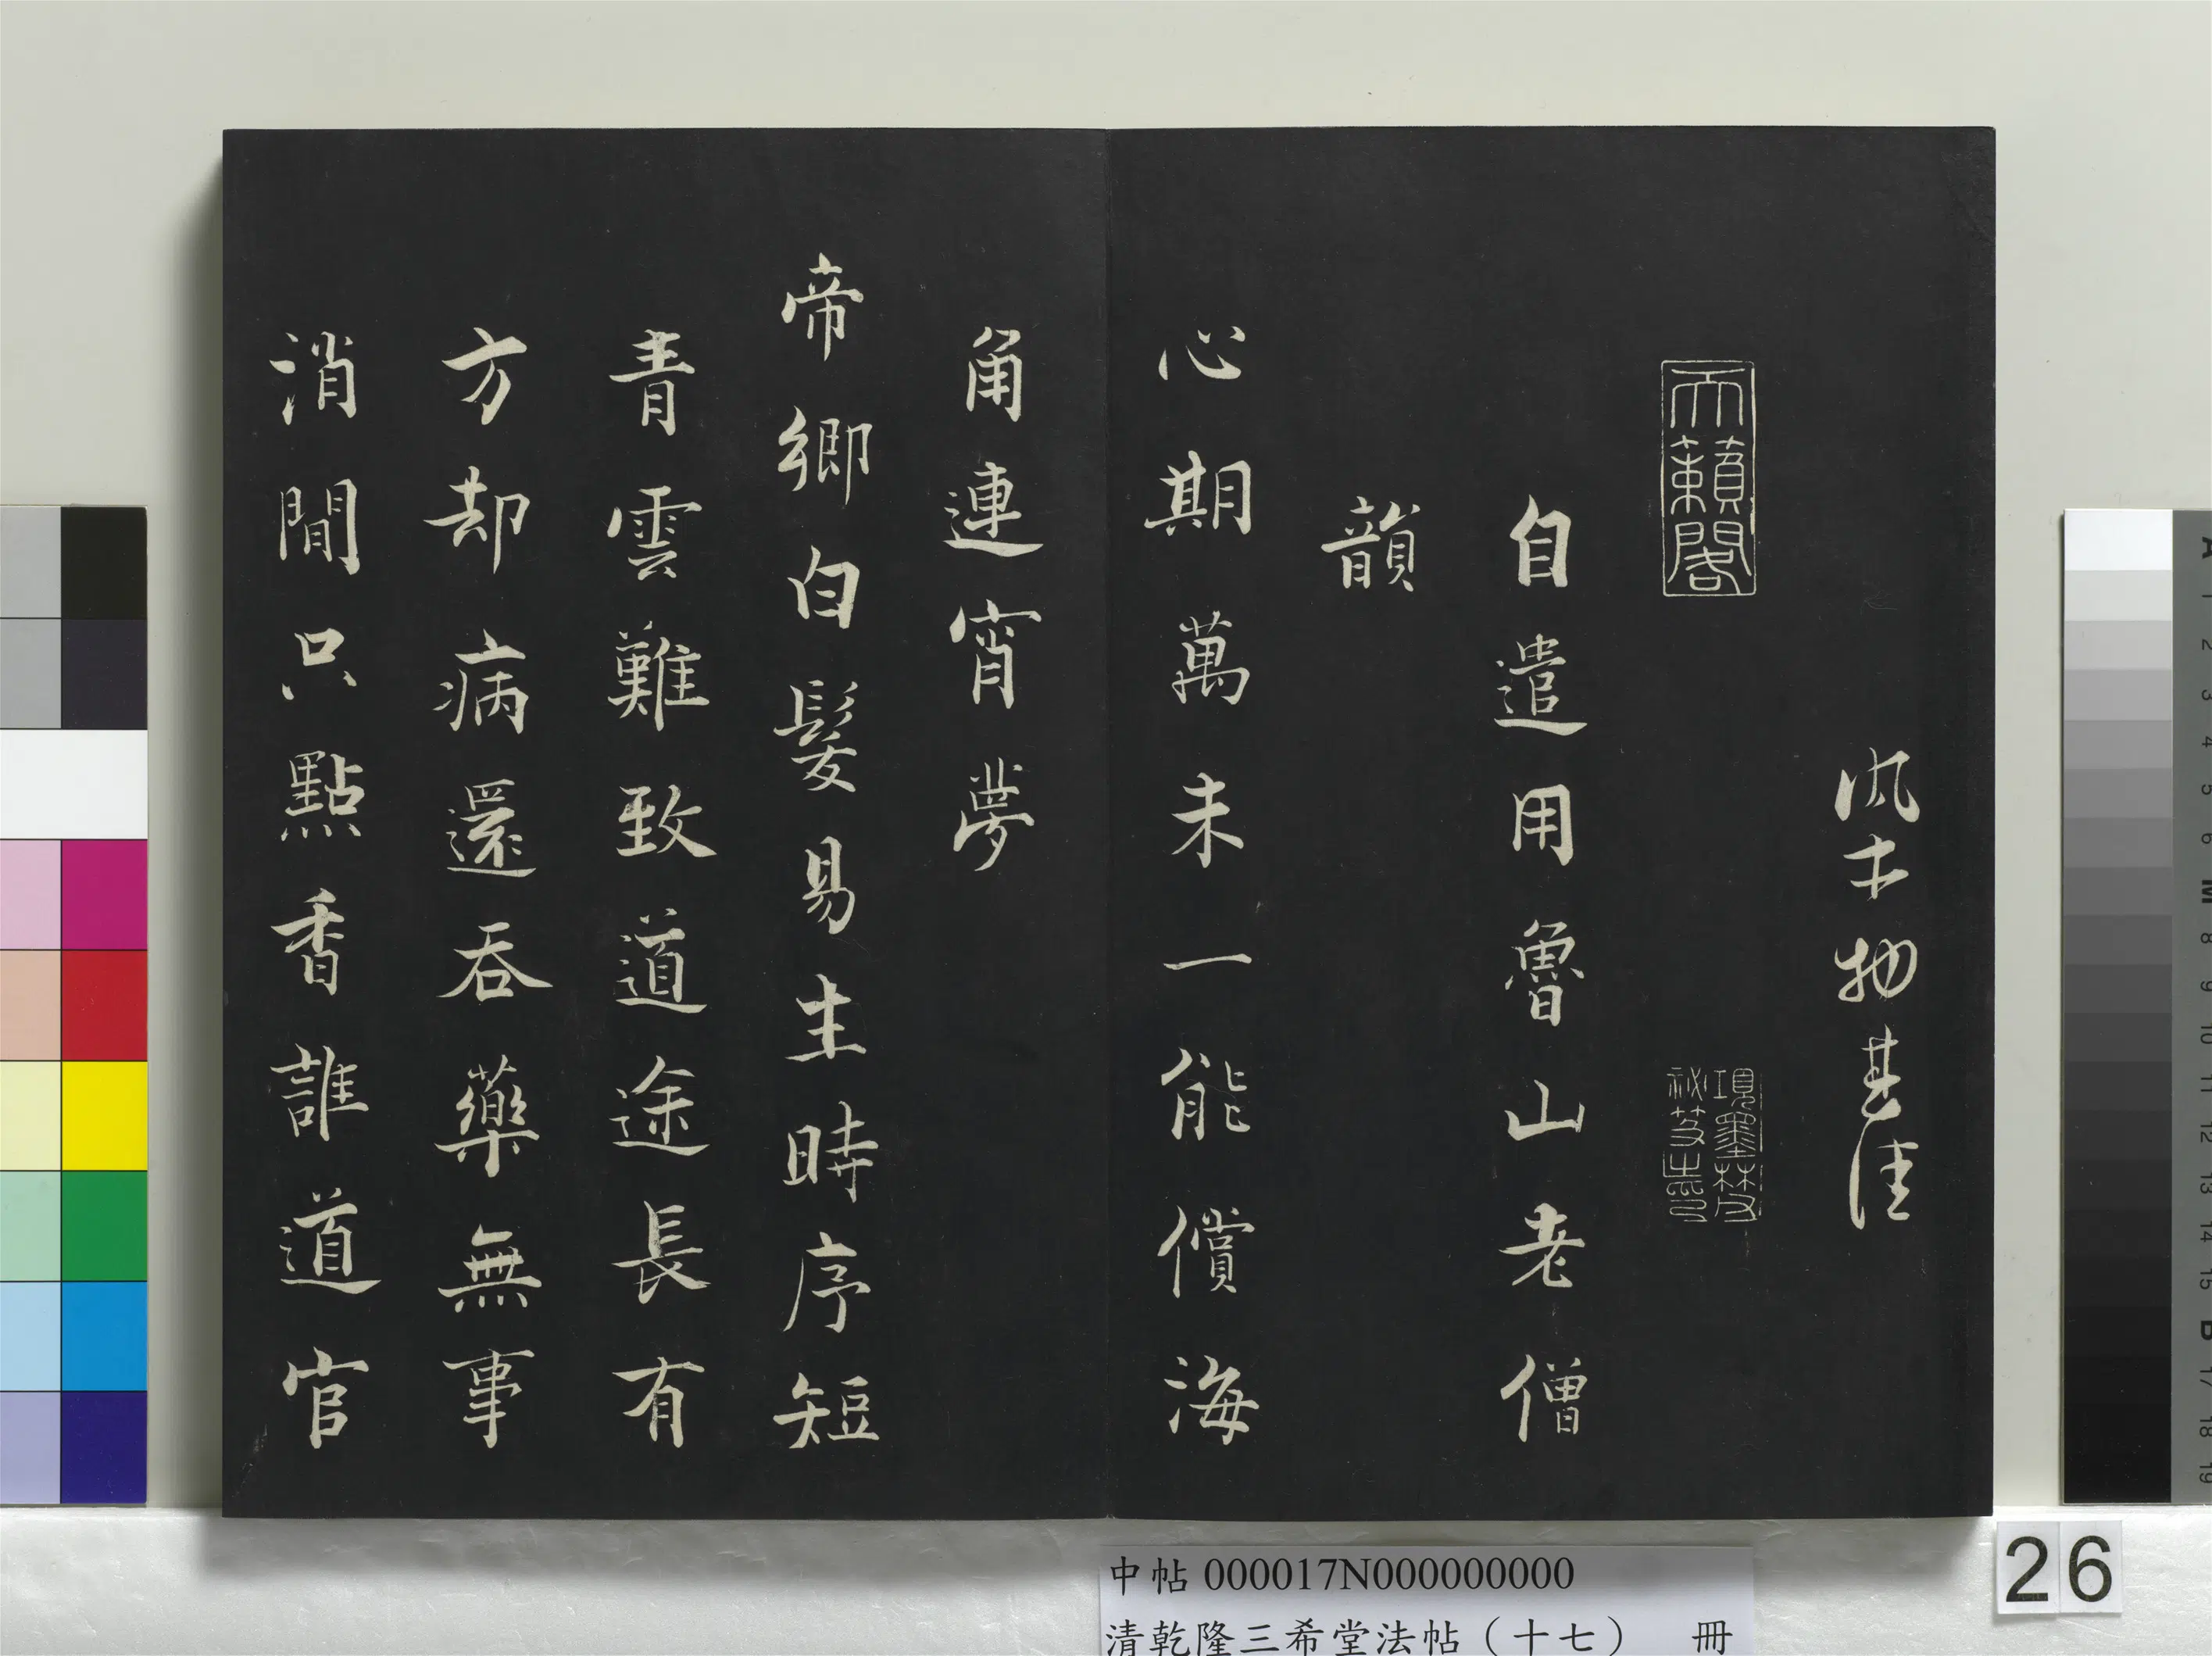 風土物甚佳
天籟閣
項墨林父
祕笈之印
自遣用魯山老僧
韻
心期萬未一能償海
角連宵夢
帝鄉白髮易生時序短
青雲難致道途長有
方却病還吞藥無事
消閒只點香誰道官
中帖 000017N000000000
清乾隆三希堂法帖（十七） 冊
26